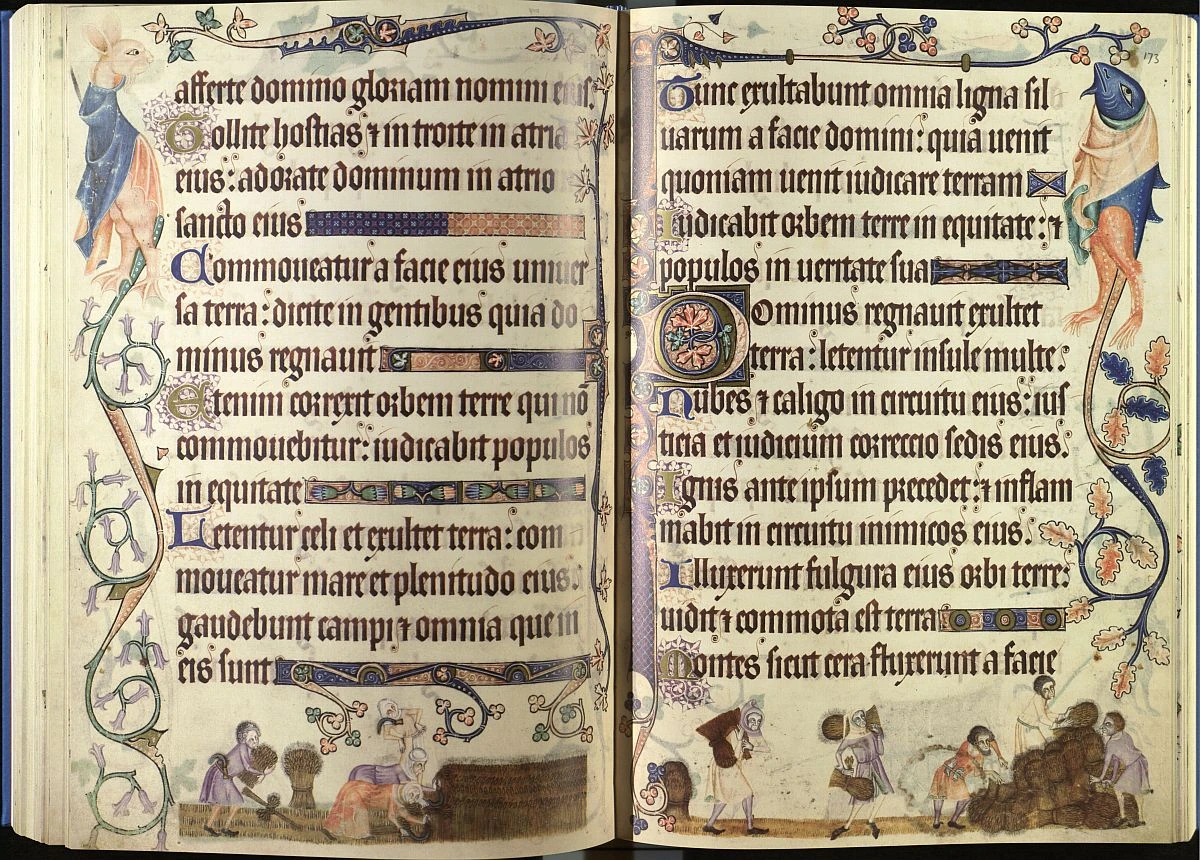 afferte domino gloriam nomini eius.
Tollite hostias ⁊ introite in atria
eius: adorate dominum in atrio
sancto eius
Commoueatur a facie eius uniuer
sa terra: dicite in gentibus quia do
minus regnauit
Etenim correxit orbem terre qui nō
commouebitur: iudicabit populos
in equitate
Letentur celi et exultet terra: com
moueatur mare et plenitudo eius:
gaudebunt campi ⁊ omnia que in
eis sunt
173
Tunc exultabunt omnia ligna sil
uarum a facie domini: quia uenit
quoniam uenit iudicare terram
Iudicabit orbem terre in equitate: ⁊
populos in ueritate sua
Dominus regnauit exultet
terra: letentur insule multe:
Nubes ⁊ caligo in circuitu eius: ius
ticia et iudicium correccio sedis eius.
Ignis ante ipsum precedet: ⁊ inflam
mabit in circuitu inimicos eius.
Illuxerunt fulgura eius orbi terre:
uidit ⁊ commota est terra
Montes sicut cera fluxerunt a facie